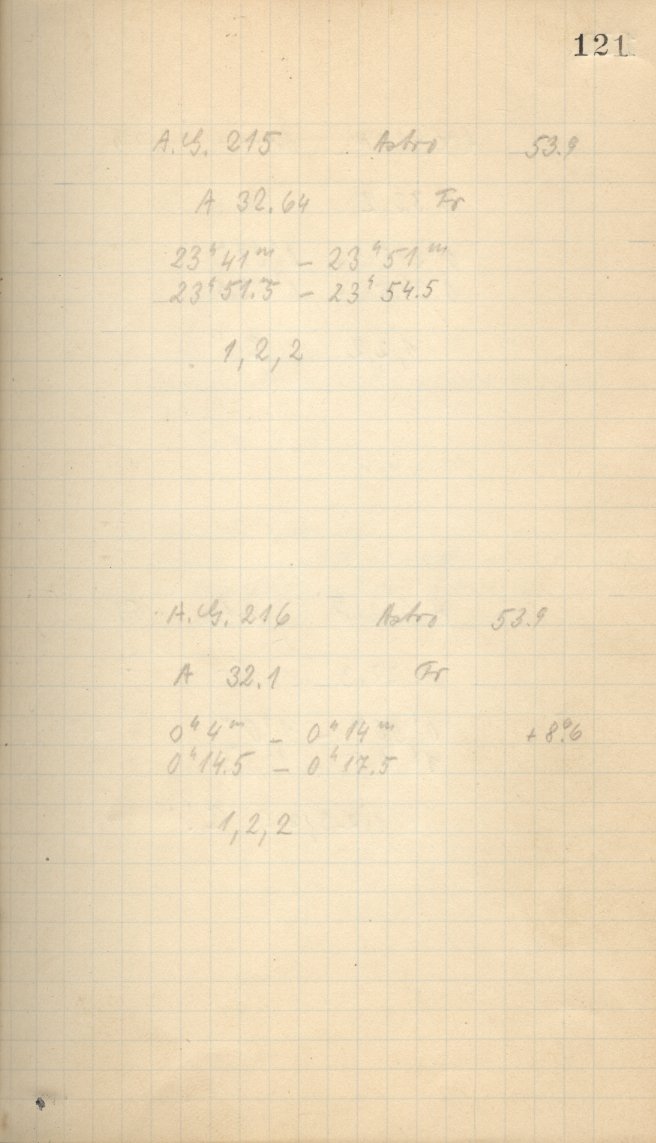 121
A.G. 215 Astro 53.9
A 32.64 Fr
23ʰ41ᵐ – 23ʰ51ᵐ
23ʰ51.5 – 23ʰ54.5
1, 2, 2
A.G. 216 Astro 53.9
A 32.1 Fr
0ʰ4ᵐ – 0ʰ14ᵐ +8°.6
0ʰ14.5 – 0ʰ17.5
1, 2, 2